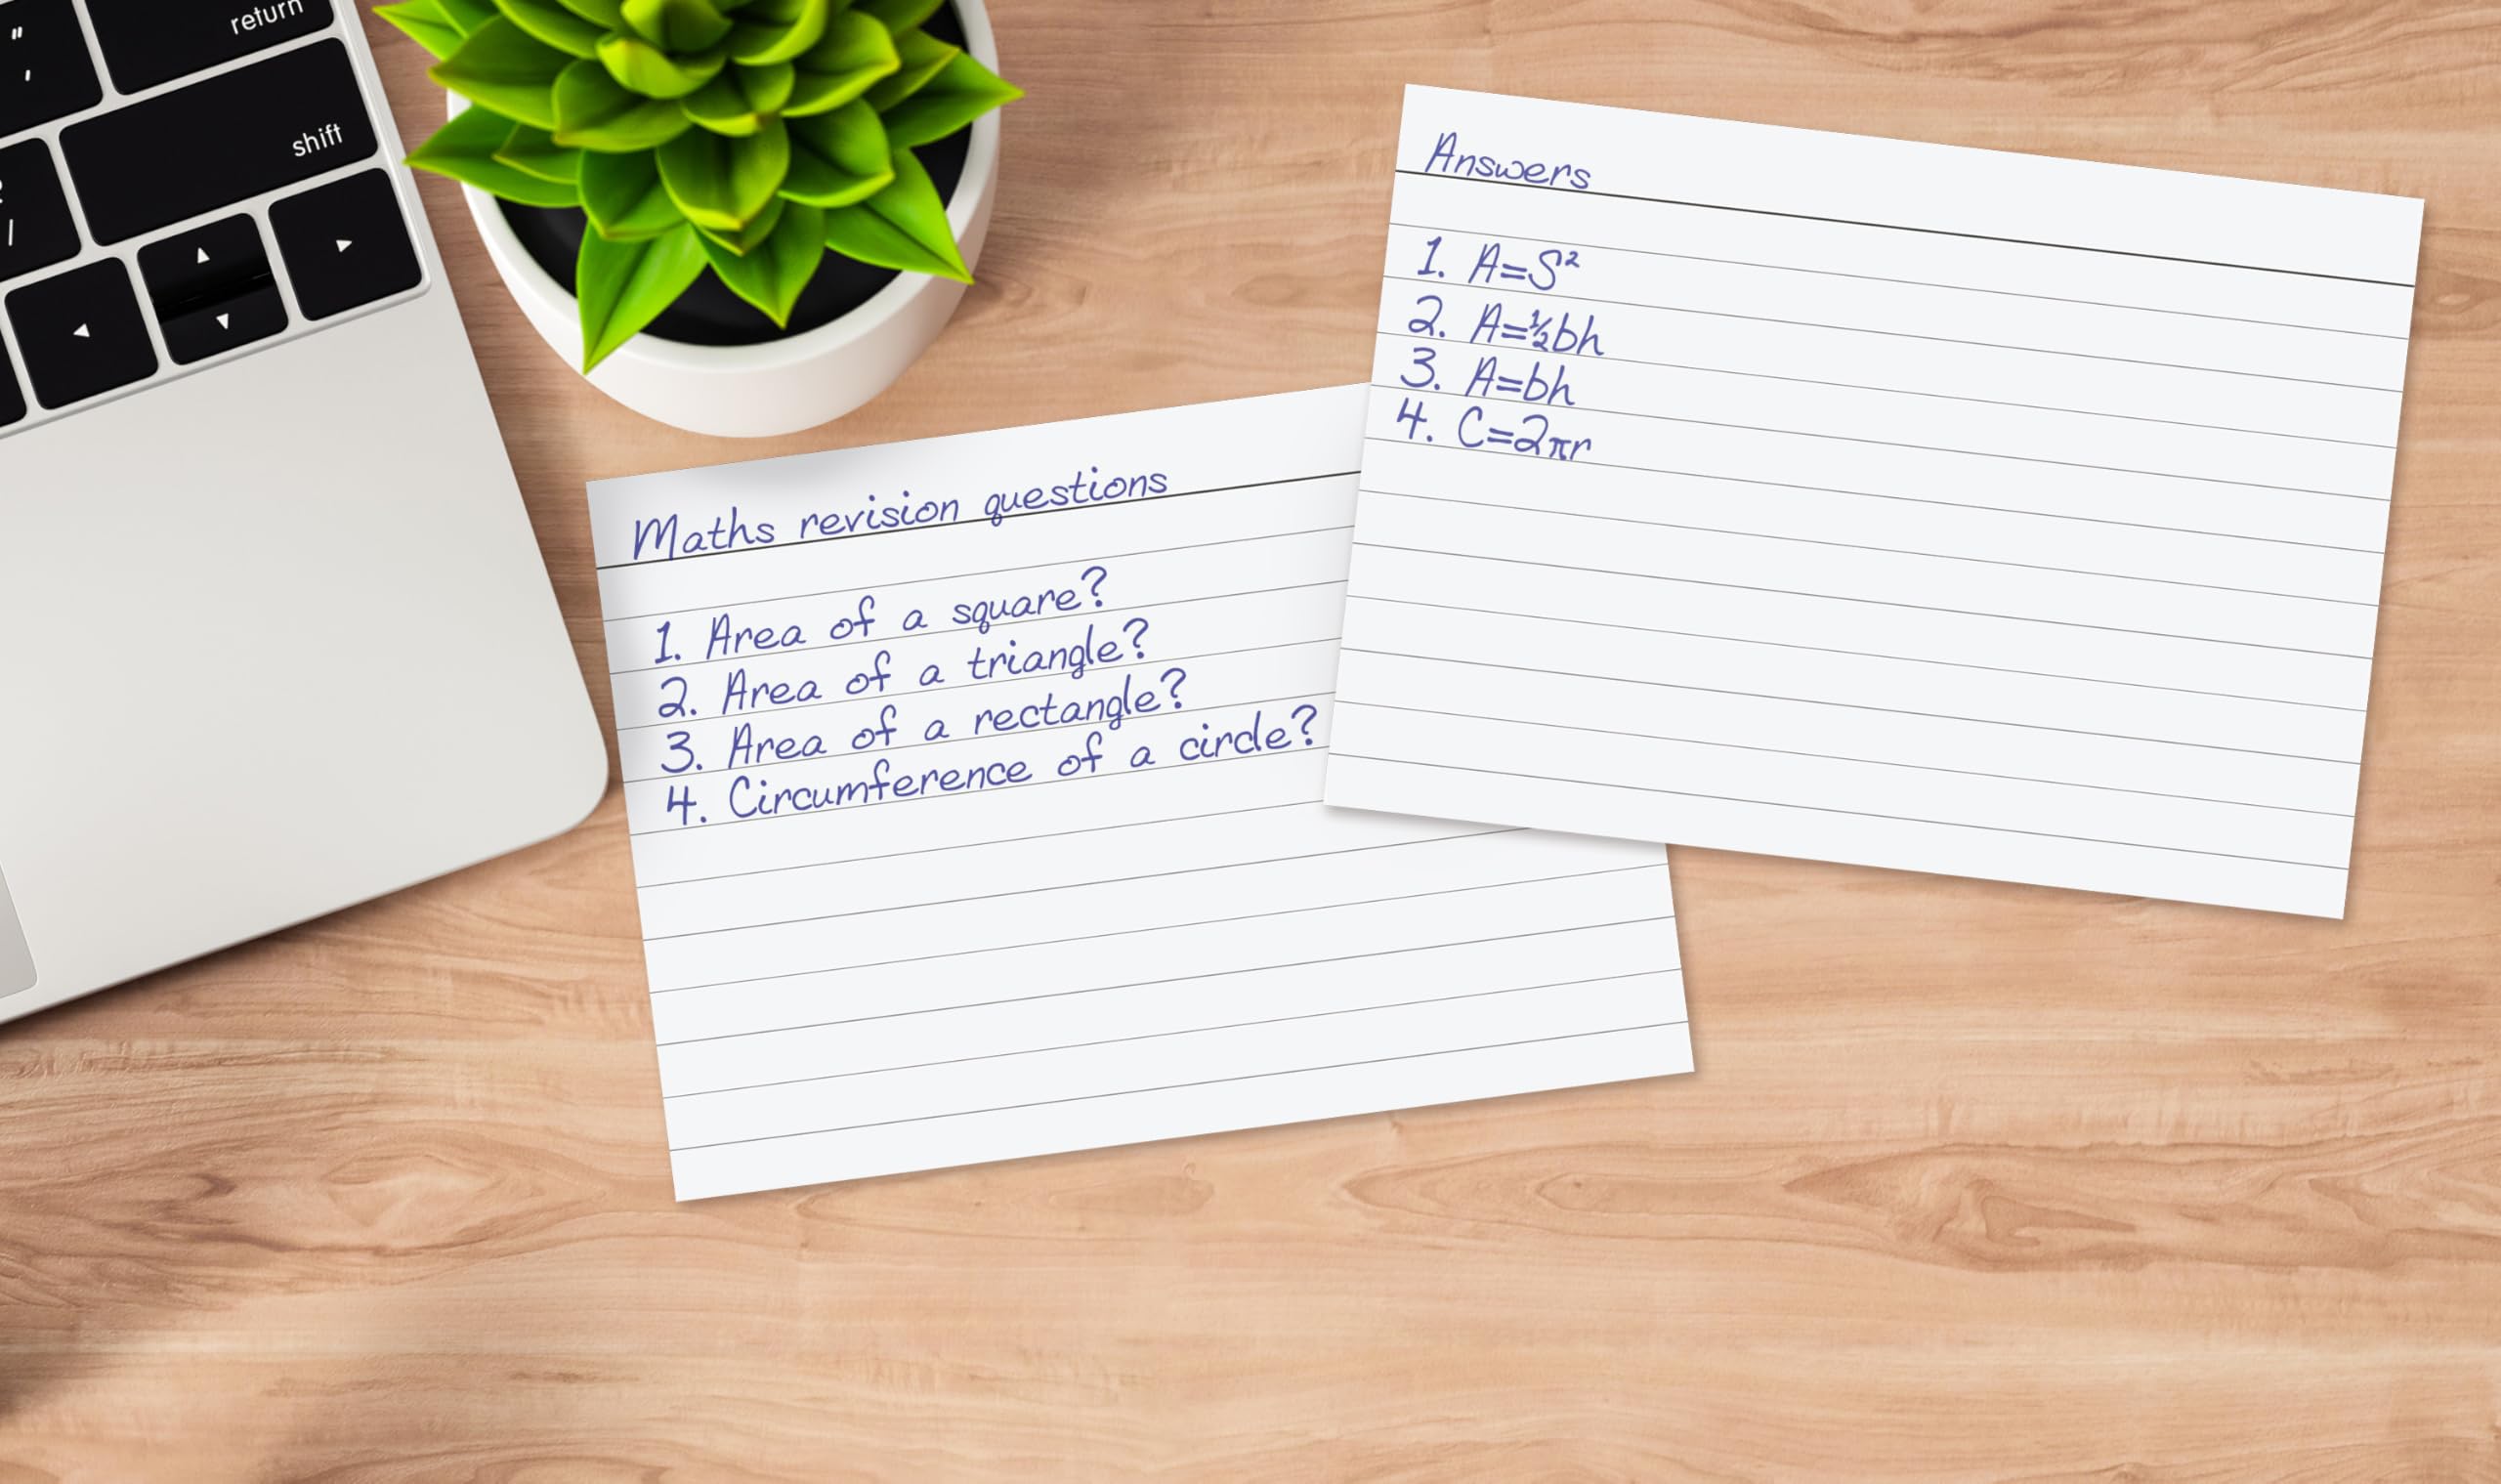 return
shift
Maths revision questions
1. Area of a square?
2. Area of a triangle?
3. Area of a rectangle?
4. Circumference of a circle?
Answers
1. A=S²
2. A=½bh
3. A=bh
4. C=2πr